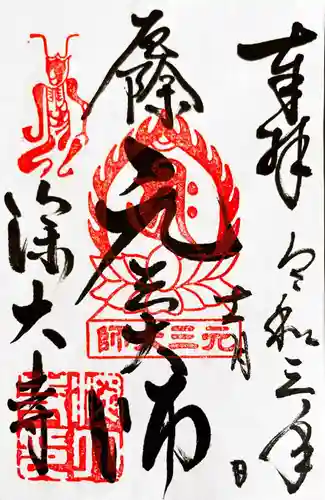 奉拝
令和三年
十二月 日
厄除
元三大師
元三大師
深大寺